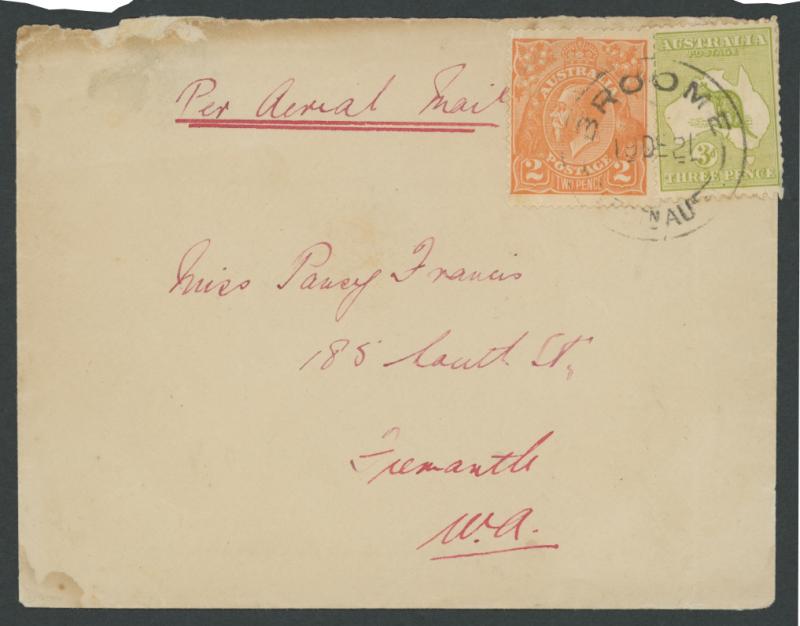 Per Aerial Mail
AUSTRALIA
POSTAGE
2 2
TWO PENCE
AUSTRALIA
POSTAGE
3D
THREE PENCE
BROOME
19 DE 21
Miss Pansy Francis
185 South St,
Fremantle
W.A.